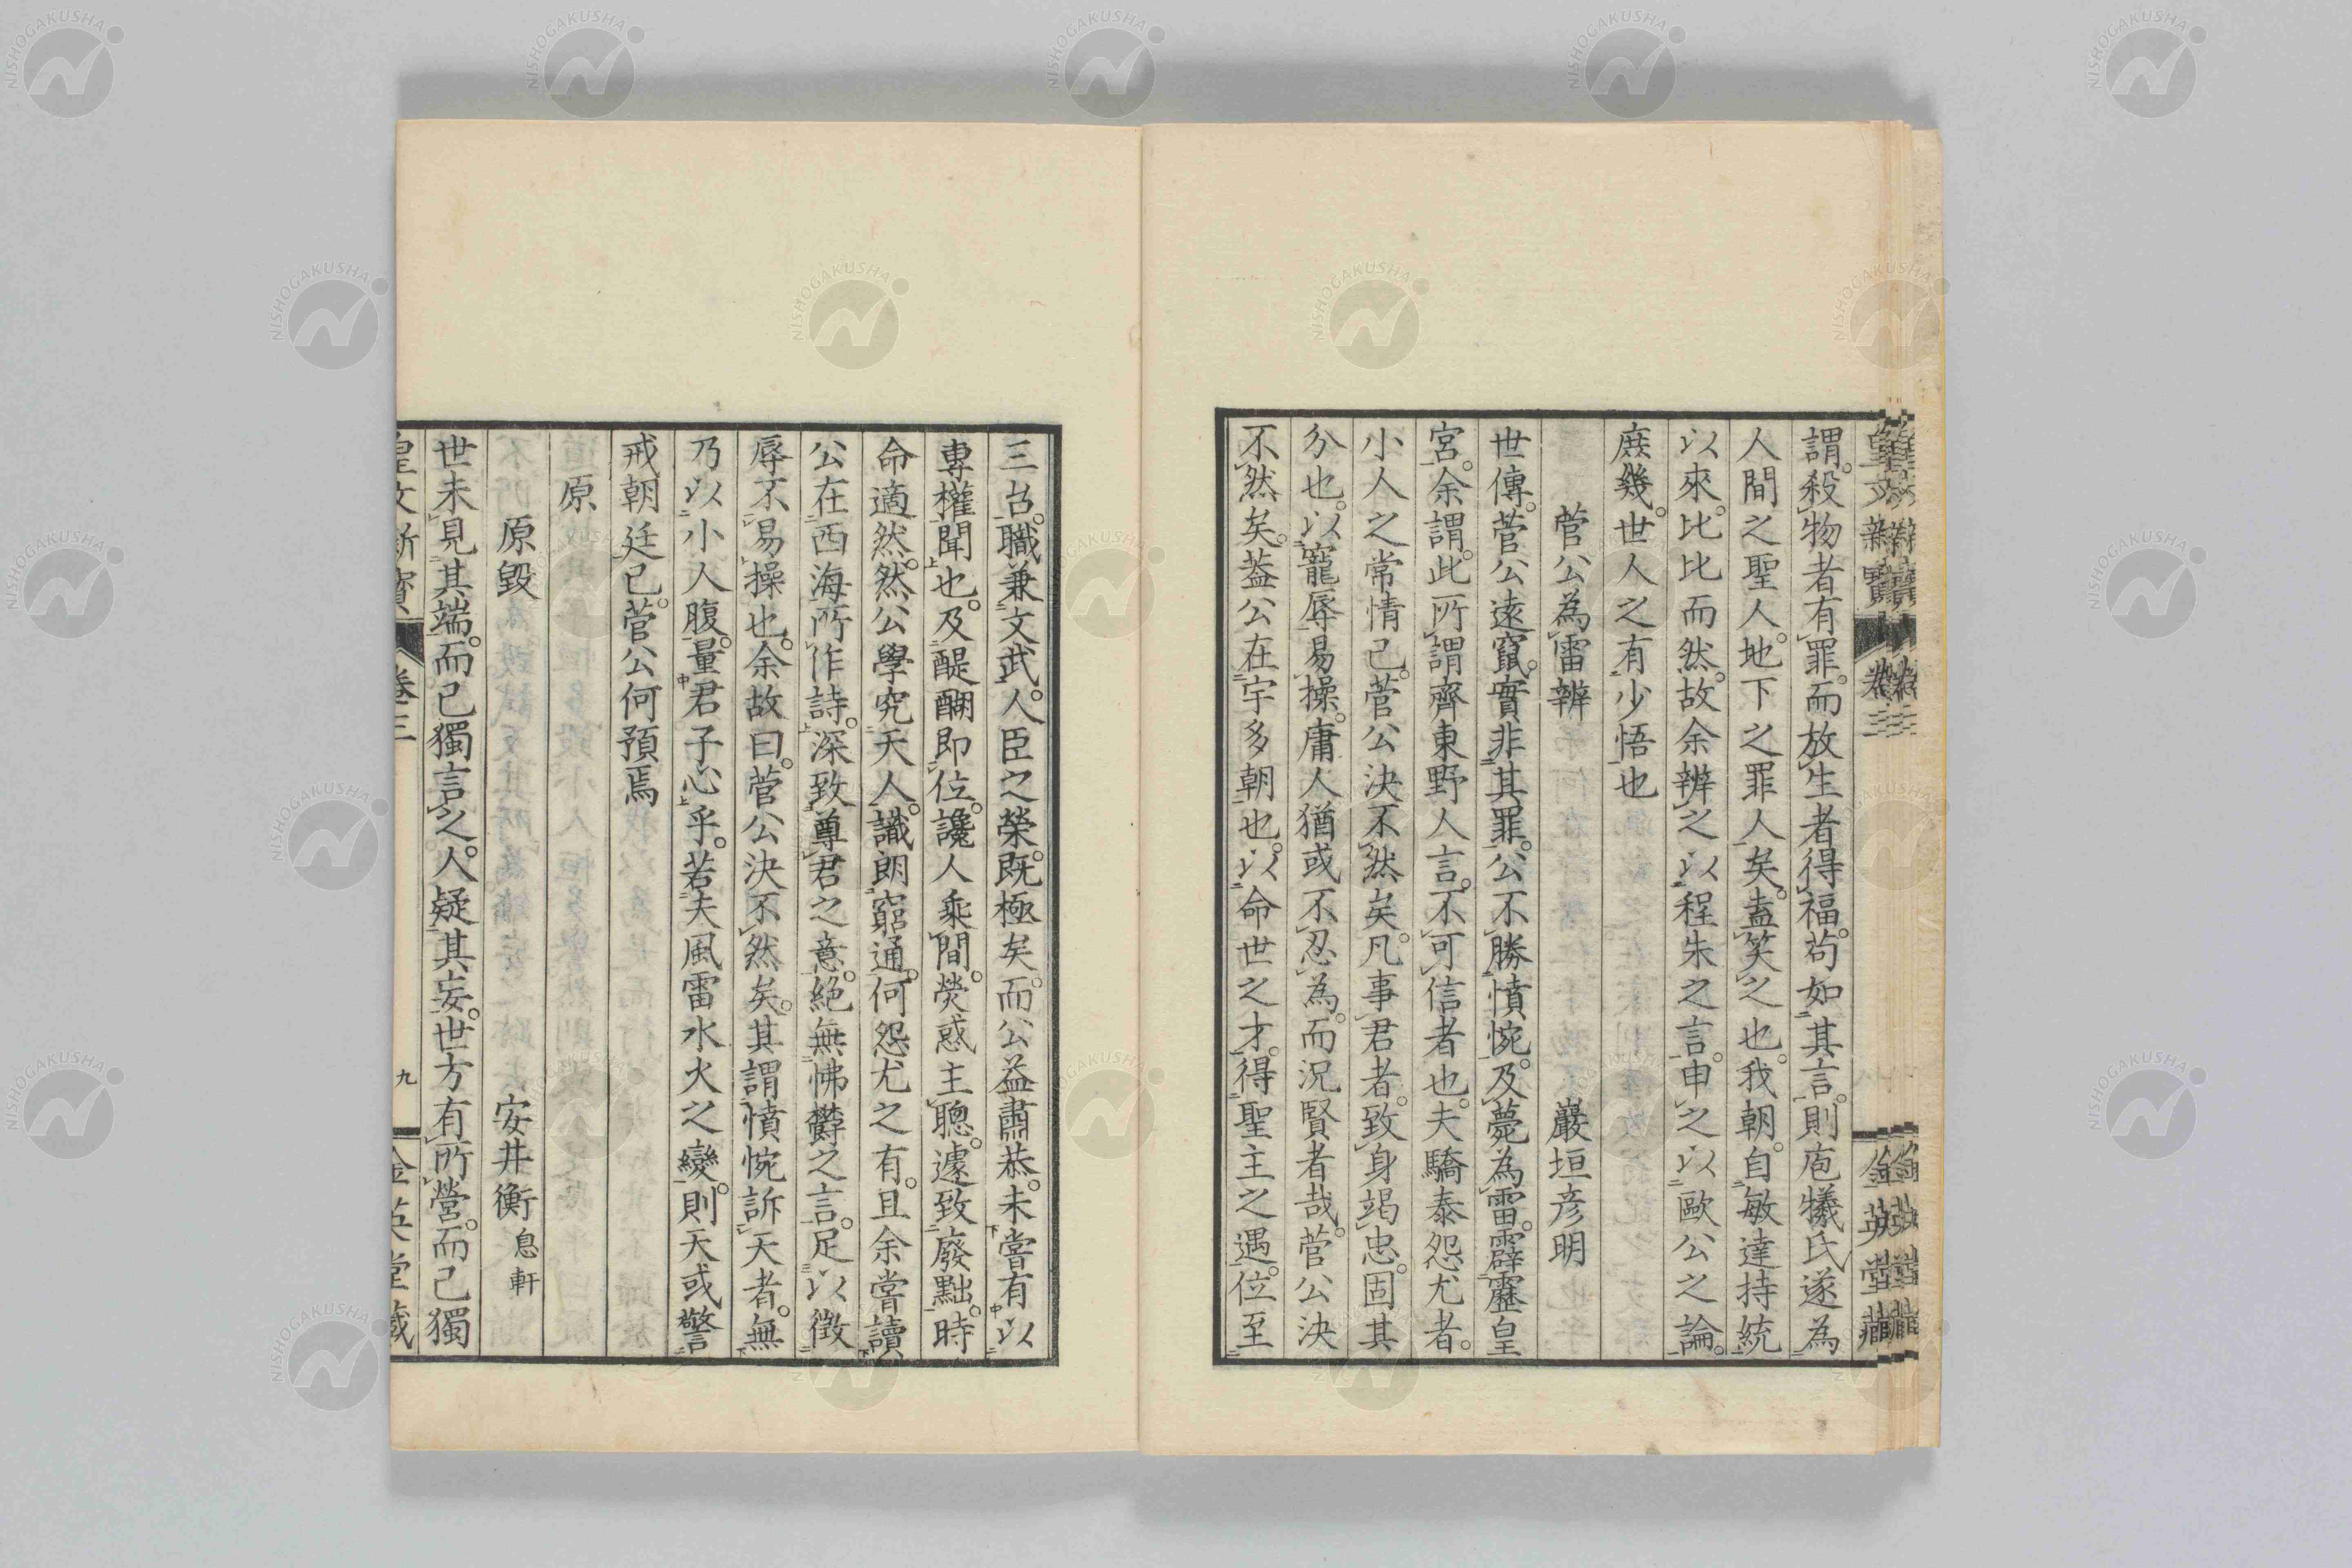 謂。殺物者有罪。而放生者得福。苟如其言。則庖犧氏遂為
人間之聖人。地下之罪人矣。盍笑之也。我朝。自敏達持統
以來。比比而然。故余辨之以程朱之言。申之以歐公之論。
庶幾。世人之有少悟也
菅公為雷辨　巖垣彦明
世傳。菅公遠竄。實非其罪。公不勝憤惋。及薨為雷。霹靂皇
宮。余謂。此所謂齊東野人言。不可信者也。夫驕泰怨尤者。
小人之常情已。菅公決不然矣。凡事君者。致身竭忠。固其
分也。以寵辱易操。庸人猶或不忍為。而況賢者哉。菅公決
不然矣。蓋公在宇多朝也。以命世之才。得聖主之遇。位至
三台。職兼文武。人臣之榮。既極矣。而公益肅恭。未嘗有以
專權聞也。及醍醐即位。讒人乘間。熒惑主聰。遽致廢黜。時
命適然。然公學究天人。識朗窮通。何怨尤之有。且余嘗讀
公在西海所作詩。深致尊君之意。絕無怫鬱之言。足以徵
辱不易操也。余故曰。菅公決不然矣。其謂憤惋訴天者。無
乃以小人腹。量君子心乎。若夫風雷水火之變。則天或警
戒朝廷已。菅公何預焉
原
原毀　安井衡 息軒
世未見其端。而己獨言之。人疑其妄。世方有所營。而己獨
皇文新寶 卷三 九 金英堂藏
NISHOGAKUSHA